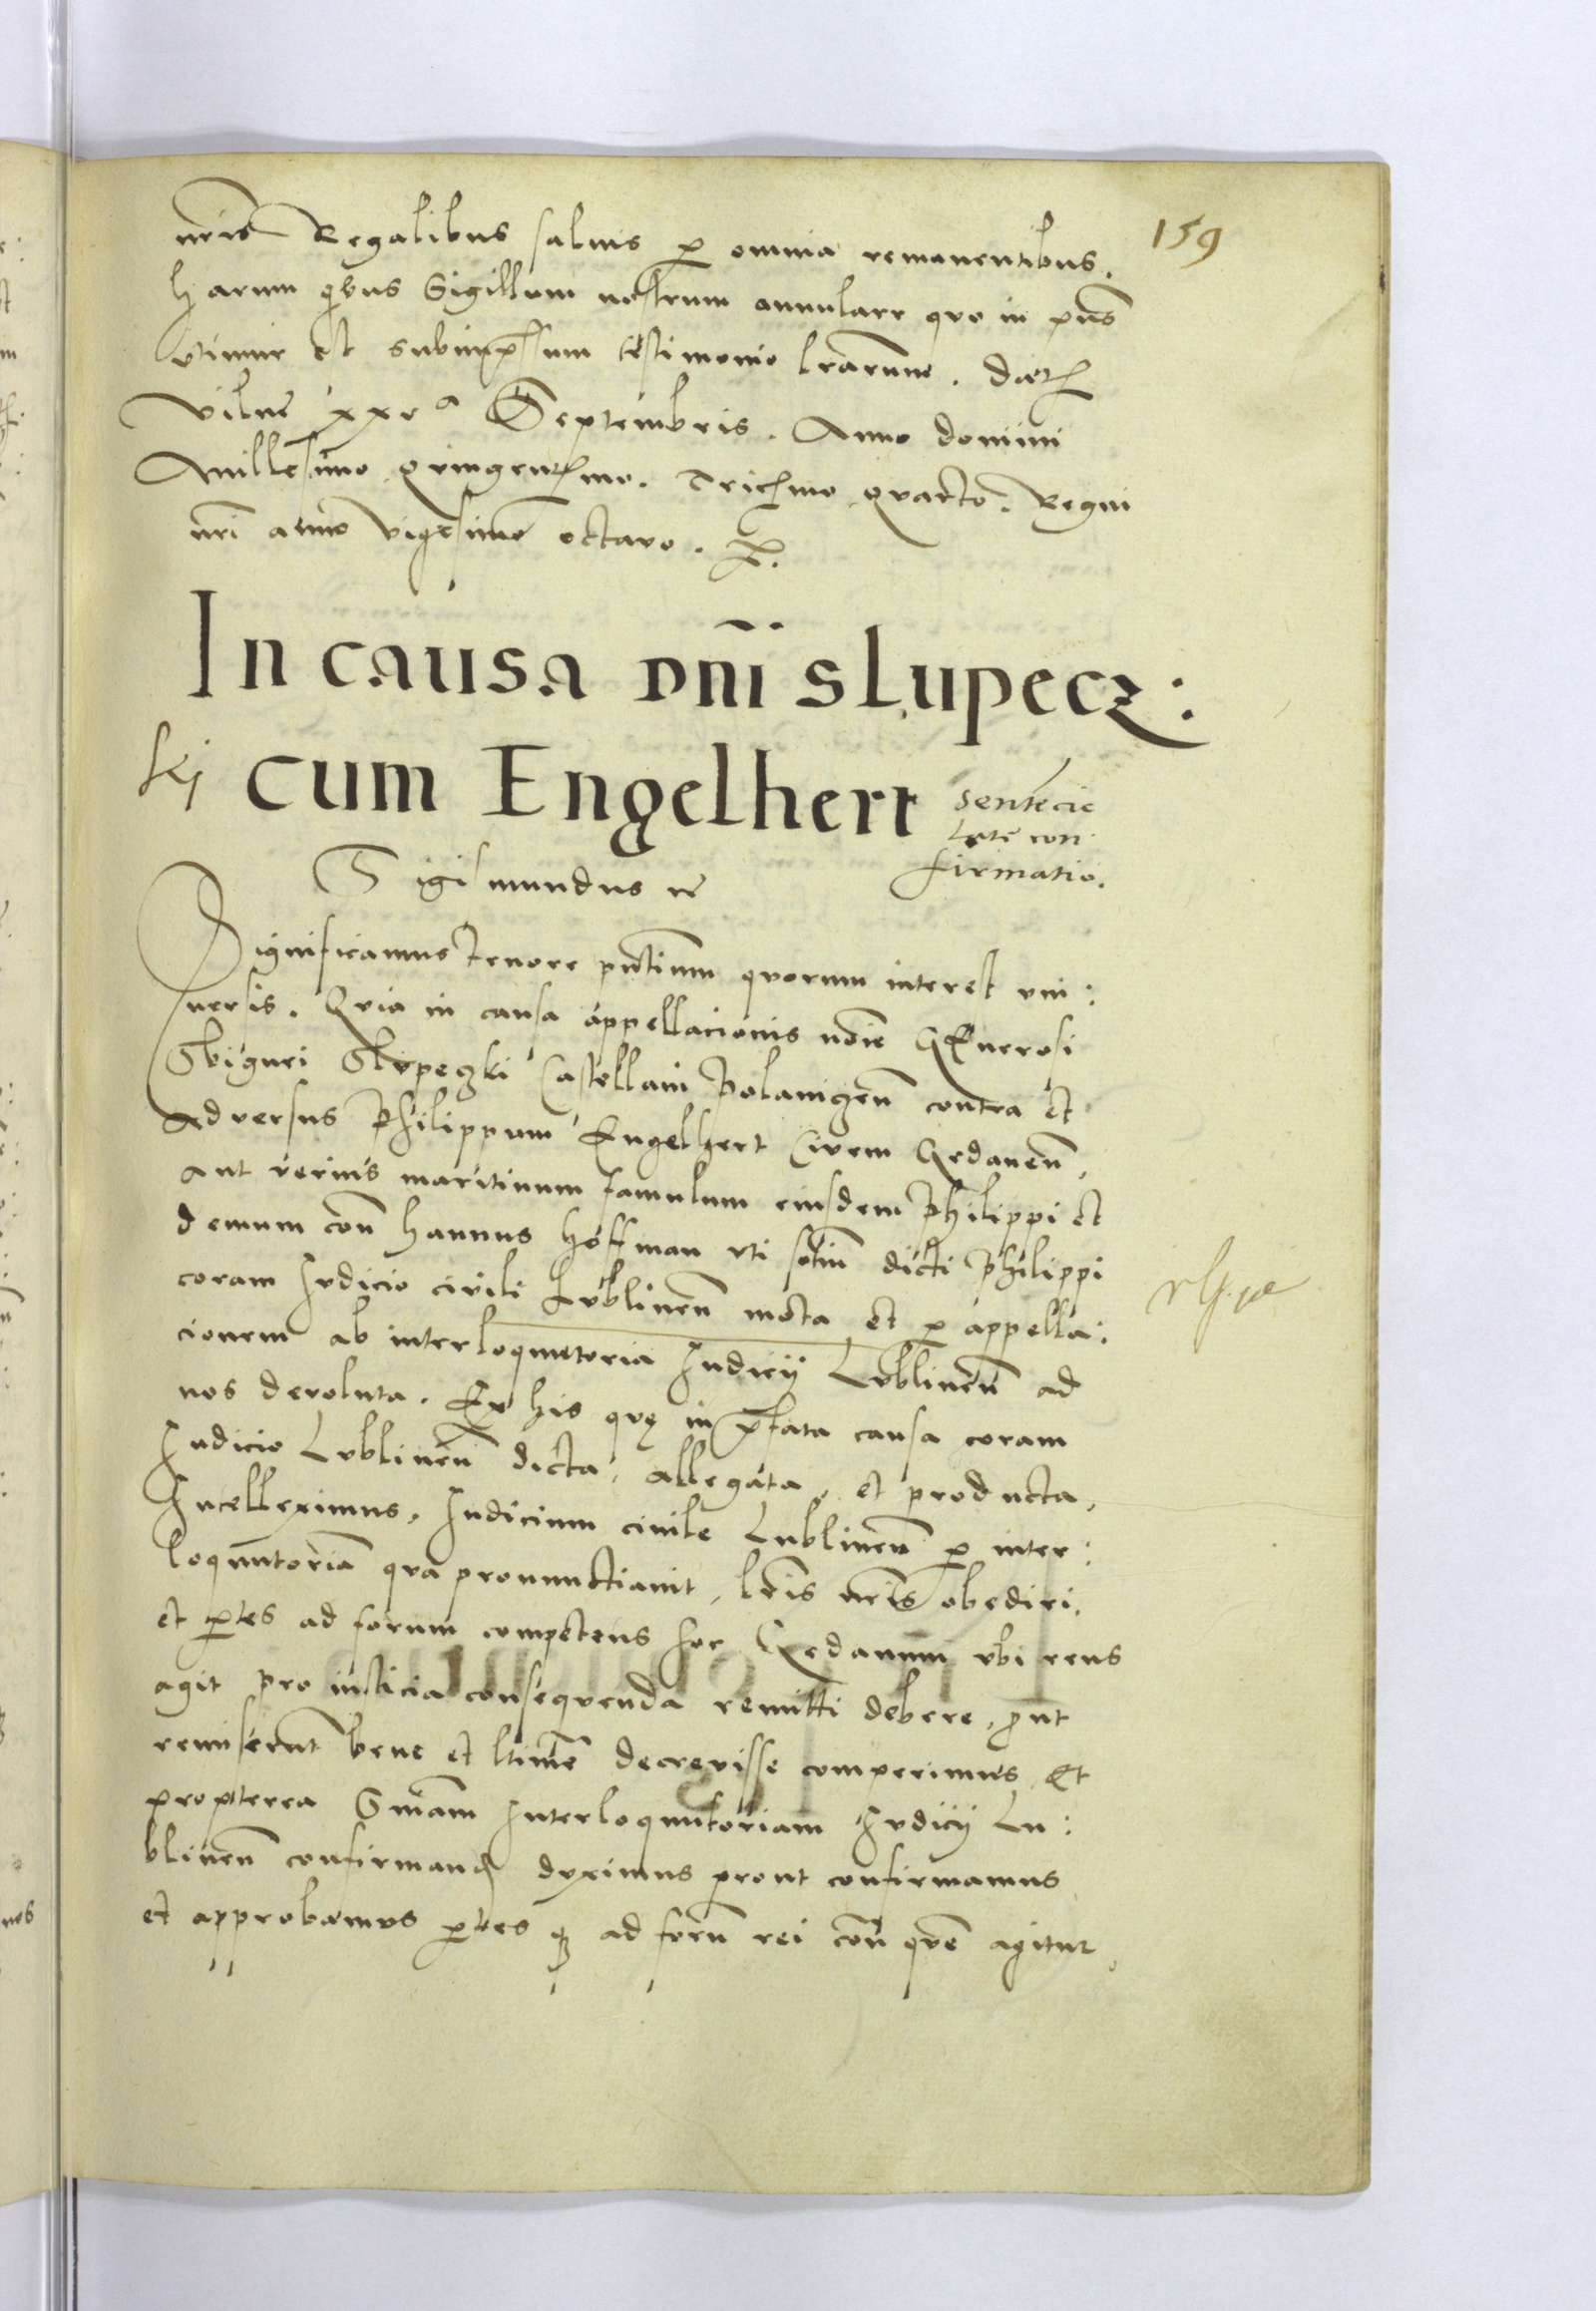 159
nr̄is Regalibus saluis p omnia remanentibus.
harum qbus Sigillum nostrum annulare quo in pn̄s
vtimur est subimpssum testimonio lr̄arum. Dat
Vilne xxva Septembris. Anno domini
Millesimo quingentmo. Tricmo quarto. Regni
nr̄i anno vigesimo octavo.
In causa dn̄i slupecz:
ki cum Engelhert
sentēcie
late con
firmatio.
Sigismundus
Significamus tenore pn̄tium quorum interest vni:
uersis. Quia in causa appellacionis noīe Generosi
Sbignei Slupeczki Castellani Polanicen̄ contra et
adversus Philippum Engelhert Civem Gedanen̄,
aut verius maritimum famulum eiusdem Philippi et
demum con̄ hannus Hoffman vti sotiū dicti Philippi
coram Iudicio civili Lublinen̄ mota et p appella:
cionem ab interloquutoria Iudicij Lublinen̄ ad
nos devoluta. Ex his quę in pfata causa coram
Iudicio Lublinen̄ dicta, allegata, et producta,
Intelleximus, Iudicium civile Lublinen̄ p inter:
loquutoriā qua pronunctiavit, lr̄is nr̄is obediri,
et ptes ad forum competens hoc Gedanum vbi reus
agit pro iusticia consequenda remitti debere, put
remiserunt bene et ltime decrevisse comperimus, Et
propterea Sn̄iam Interloquutoriam Iudicij Lu:
blinen̄ confirmand duximus prout confirmamus
et approbamus ptes q ad forū rei con̄ quē agitur,